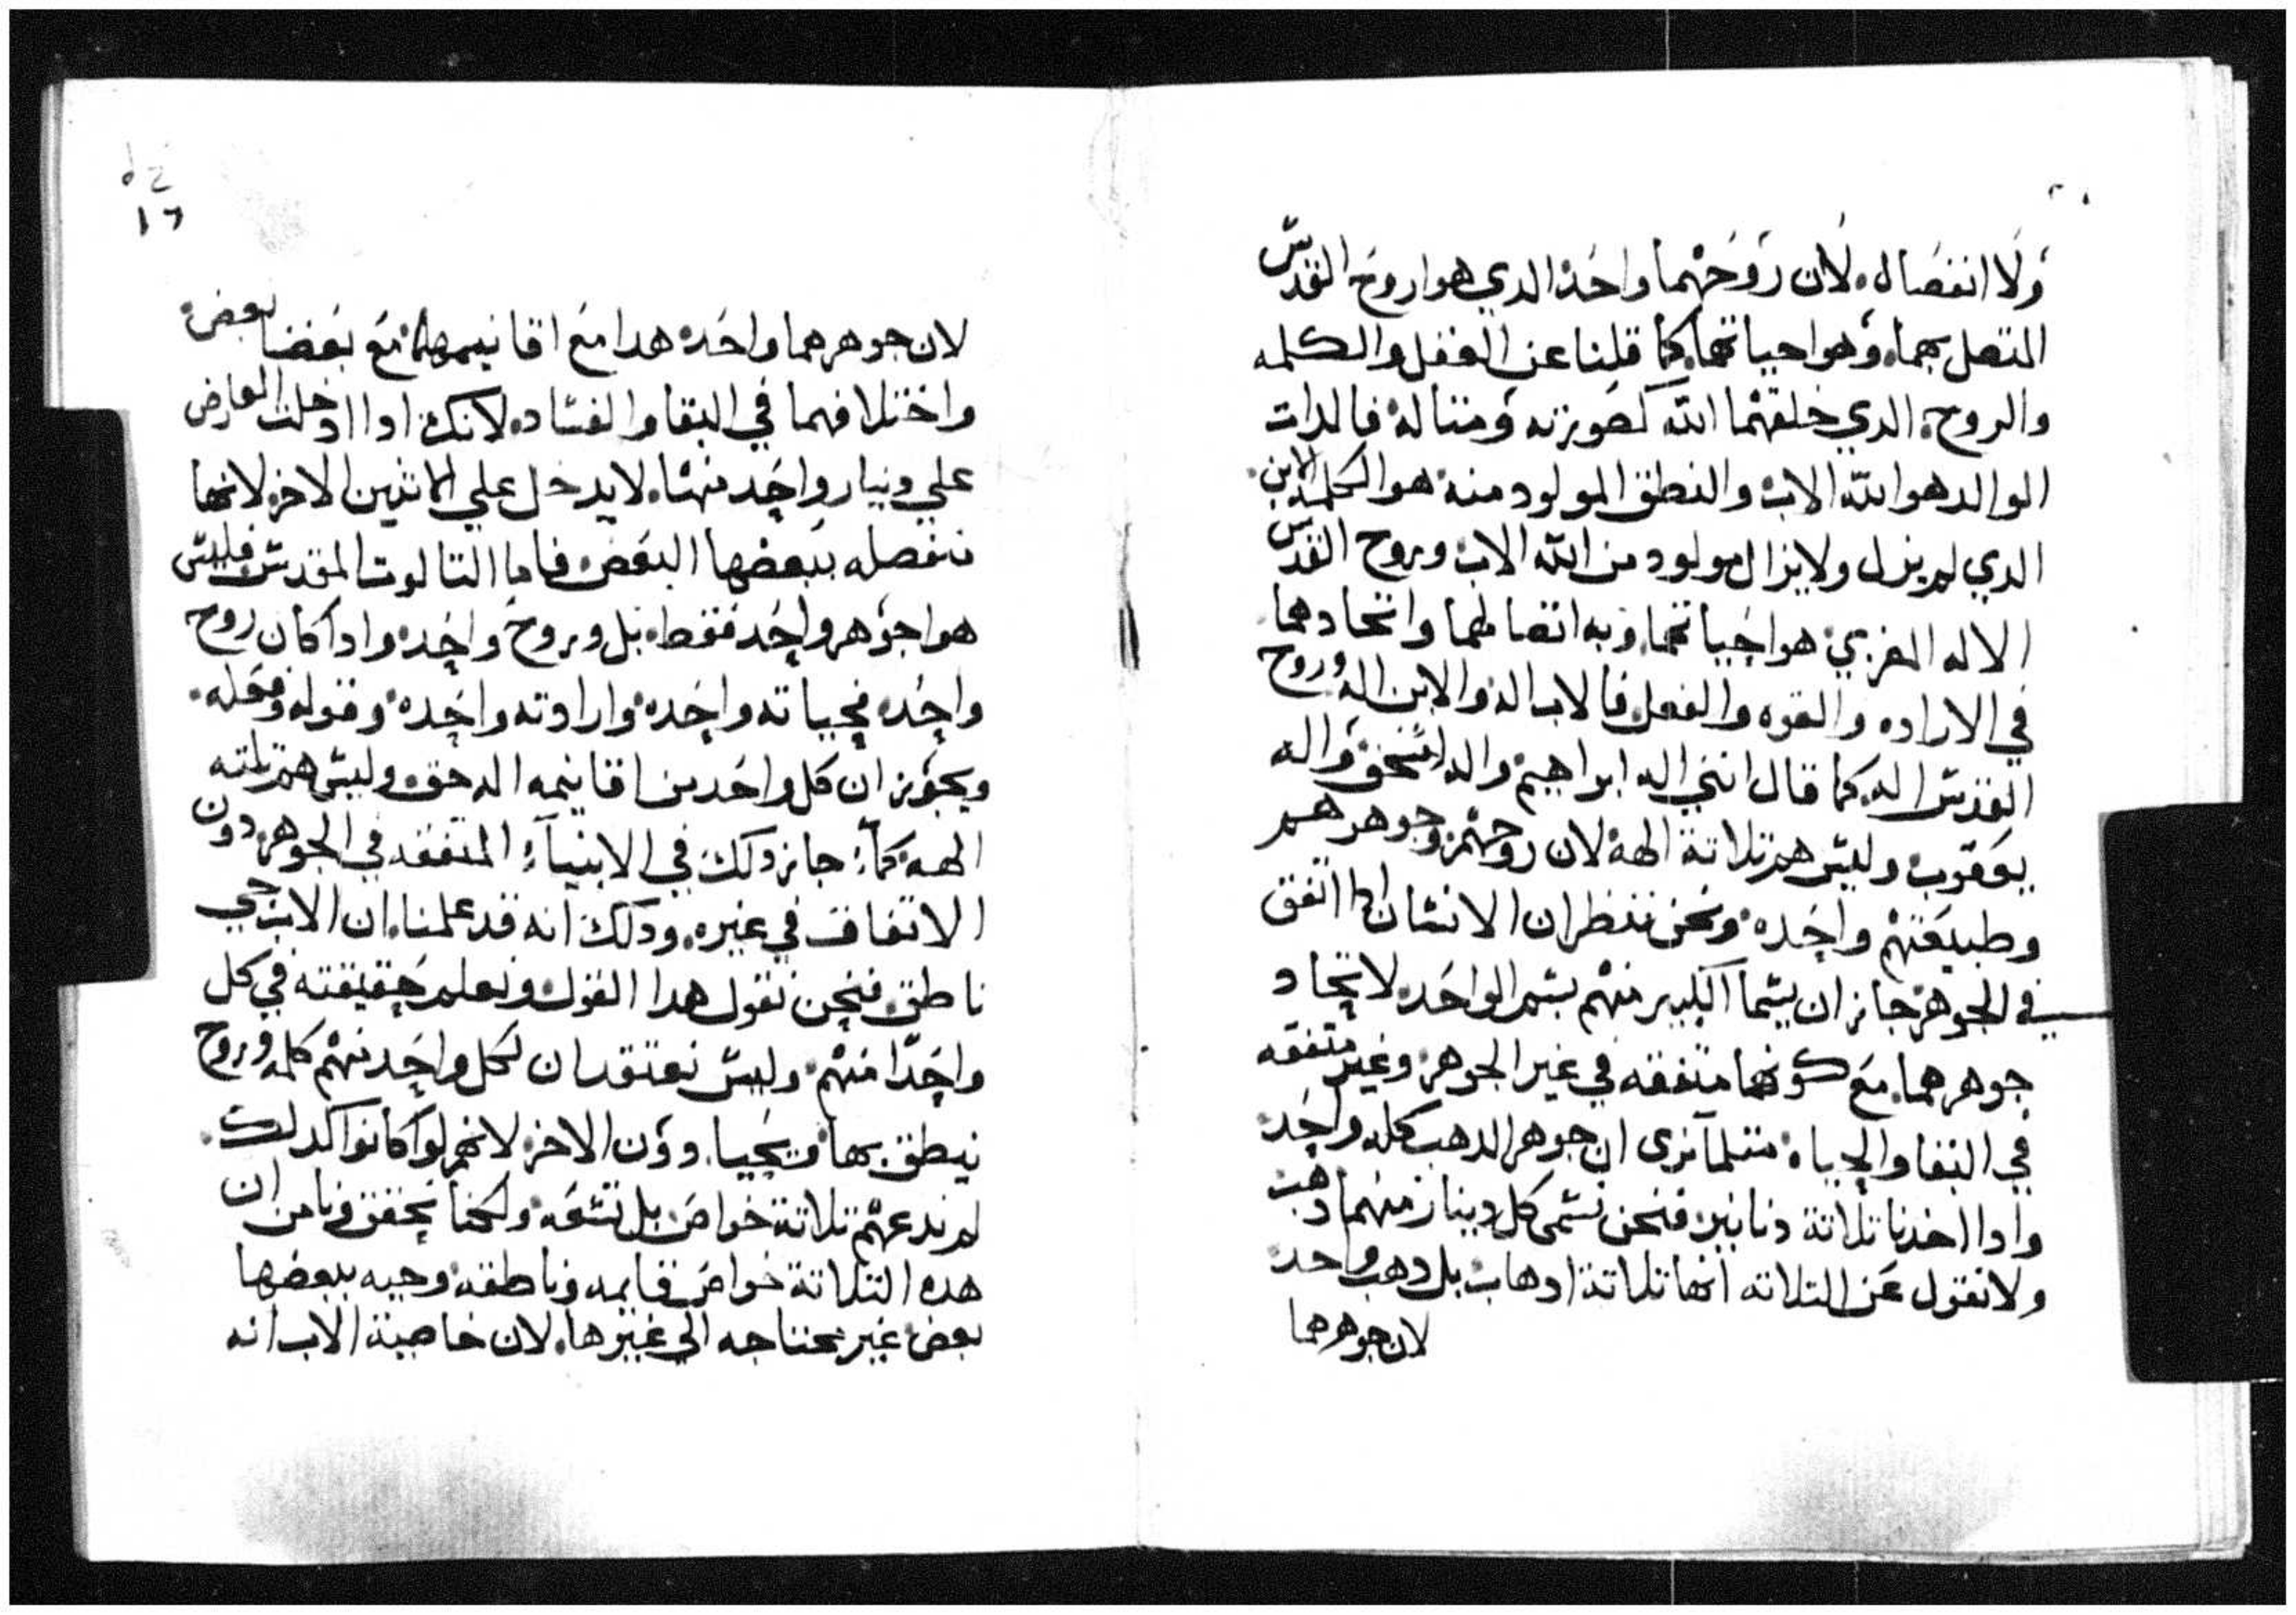 ولا انفصاله. لان روحهما واحد الدي هوا روح القدس
المتصل بهما. وهوا حياتهما. كما قلنا عن العقل والكلمه
والروح. الدي خلقهما الله كصورته ومتاله فالدات
الوالد هوا الله الاب والنطق المولود منه هوا الكلمه الابن.
الدي لم يزل ولا يزال مولود من الله الاب وروح القدس
الاله هوا حياتهما. وبه اتصالهما واتحادهما
في الاراده والقوه والفعل فالاب اله والابن اله وروح
القدس اله. كما قال انني اله ابراهيم واله اسحق واله
يعقوب وليس هم تلاتة الهة لان روحهم وجوهرهم
وطبيعتهم واحده ونحن ننظر ان الانسان ادا اتفق
في الجوهر جايز ان يسما الكبير منهم بسم الواحد لاتحاد
جوهرهما. مع كونهما متفقه في غير الجوهر وغير متفقه
في البقا والحياه متلما نرى ان جوهر الدهب كله واحد
وادا اخدنا تلاتة دنانير فنحن نسمى كل دينار منهما دهب
ولا نقول عن التلاته انها تلاتة ادهاب بل دهب واحد
لان جوهرهما
١٦
لان جوهرهما واحد هدا مع اقانيمهما مع بعضا بعض
واختلافهما في البقا والفساد. لانك ادا ادخلت العارض
علي دينار واحد منها. لا يدخل علي الاتنين الاخر لانها
منفصله ببعضها البعض فاما التالوت المقدس فليس
هوا جوهر واحد فقط. بل وروح واحده وادا كان روح
واحده فحياته واحده وارادته واحده وقوله وفعله.
ويجوز ان كل واحد من اقانيمه اله حق وليس هم تلته
الهه كما جايز دلك في الاشيآء المتفقه في الجوهر دون
الاتفاق في غيره. ودلك انه قد علمنا. ان الاب حي
ناطق فنحن نقول هدا القول ونعلم حقيقته في كل
واحدا منهم وليس نعتقد ان لكل واحد منهم كلمه وروح
ينطق بها ويحيا. دون الاخر لانهم لوا كانوا كدلك.
لم ندعهم تلاتة خواص بل تسعه ولكننا نحقق ونامن ان
هده التلاتة خواص قايمه وناطقه وحيه ببعضها
بعض غير محتاجه الي غيرها. لان خاصية الاب انه